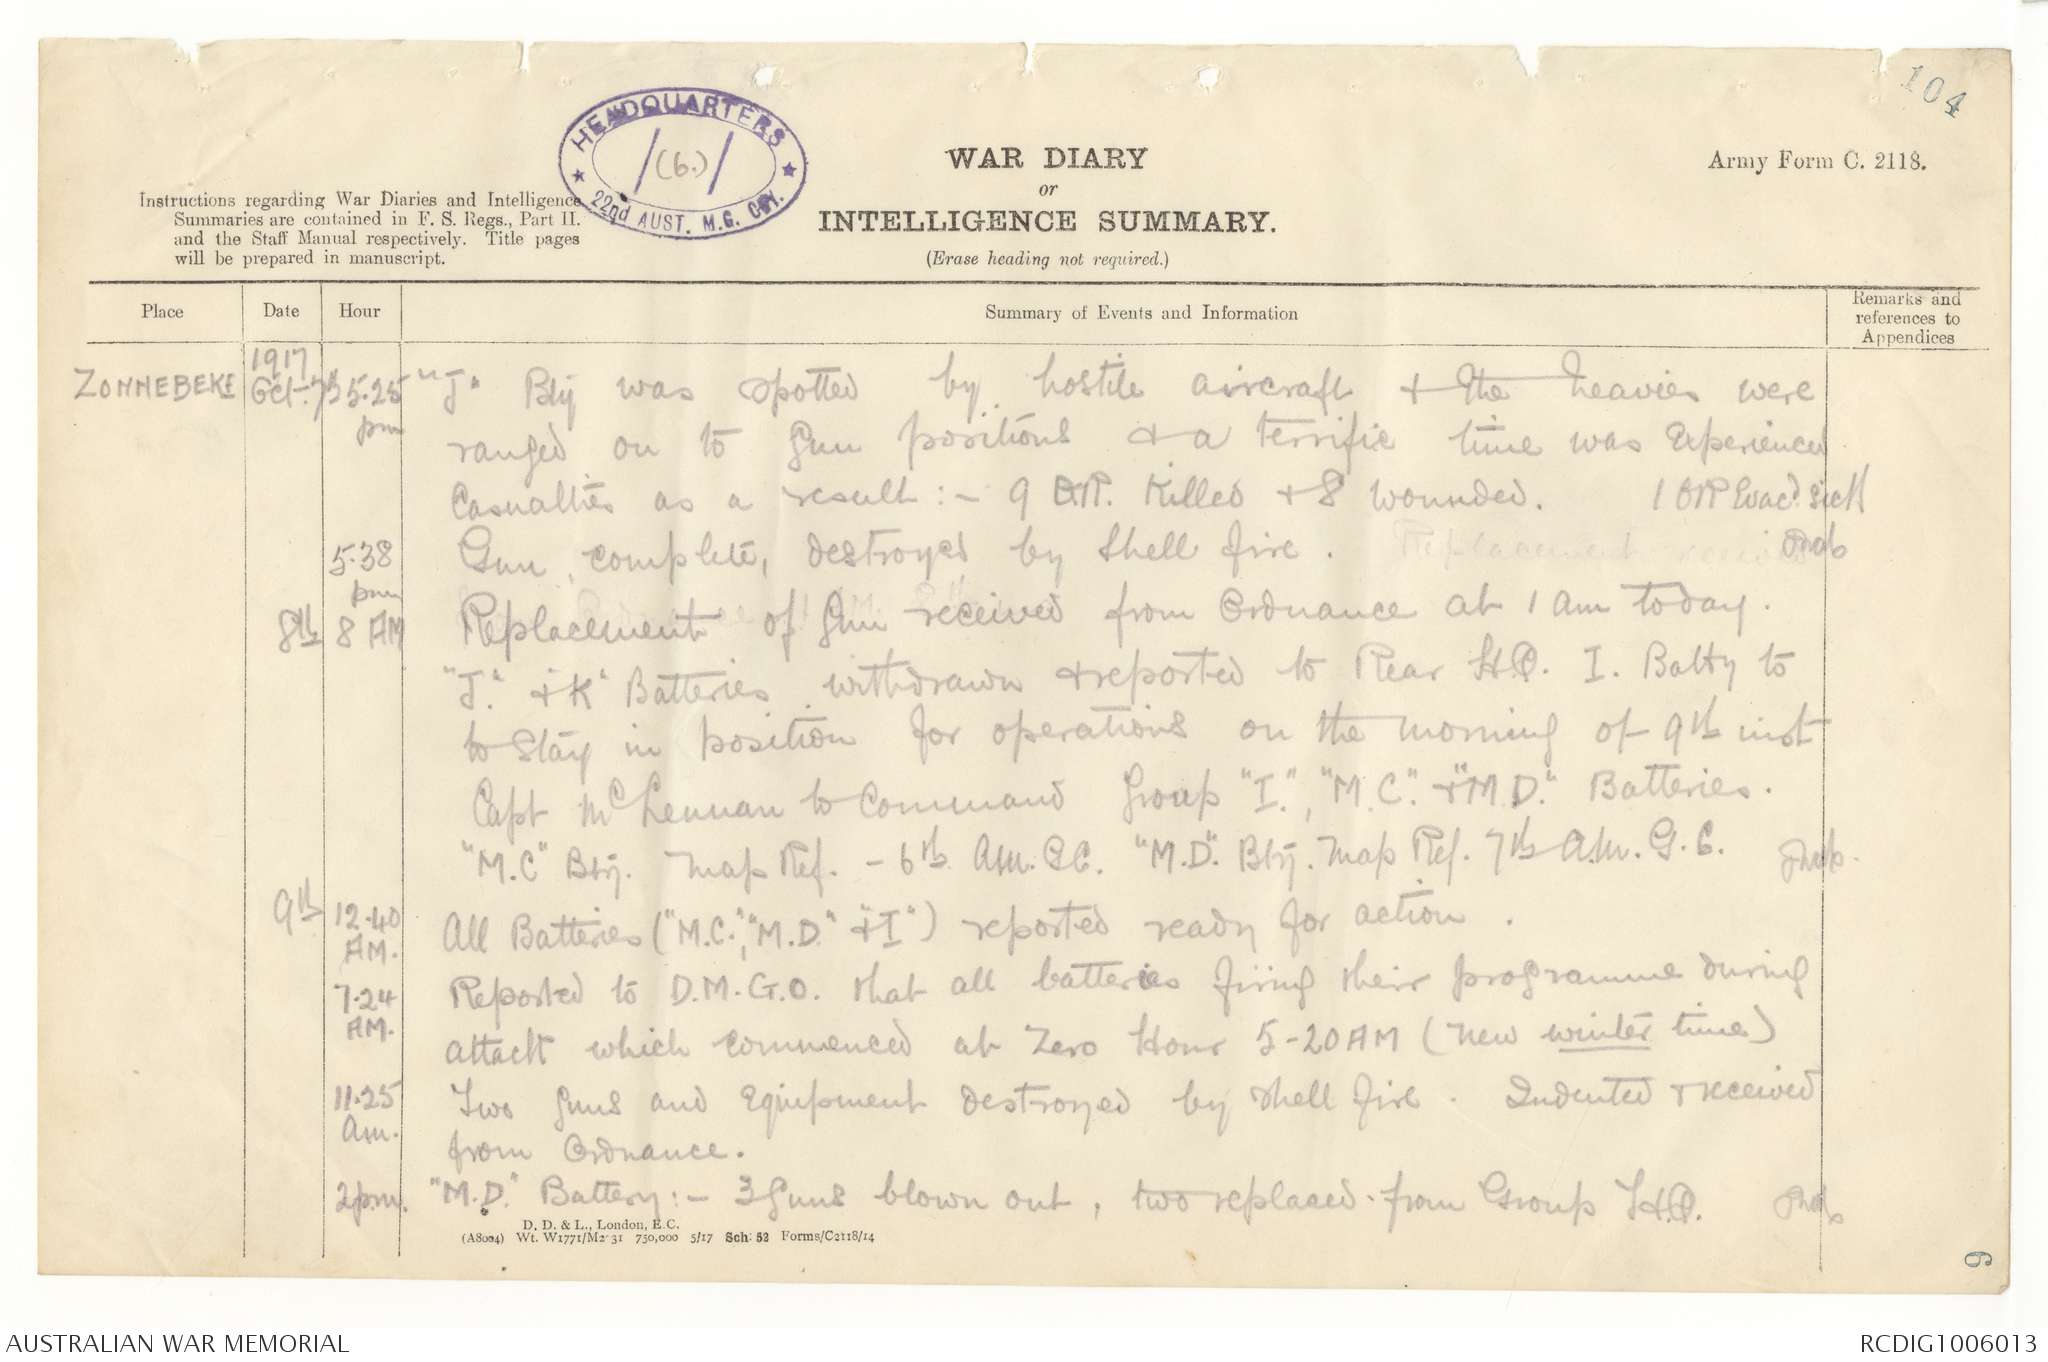 104
HEADQUARTERS
(6.)
22nd AUST. M.G. COY.
WAR DIARY
or
INTELLIGENCE SUMMARY.
(Erase heading not required.)
Army Form C. 2118.
Instructions regarding War Diaries and Intelligence
Summaries are contained in F. S. Regs., Part II.
and the Staff Manual respectively. Title pages
will be prepared in manuscript.
Place Date Hour Summary of Events and Information Remarks and references to Appendices
1917
ZONNEBEKE Oct. 7th 5.25 pm "J" Bty was spotted by hostile aircraft & the heavies were
ranged on to gun positions & a terrific time was experienced
Casualties as a result :- 9 O.R. Killed & 8 wounded. 1 OR Evac. sick
5.38 pm Gun, complete, destroyed by shell fire. Replacement received
8th 8 AM Replacement of gun received from Ordnance at 1 am today.
"J." & "K" Batteries withdrawn & reported to Rear H.Q. I. Batty to
to stay in position for operations on the morning of 9th inst
Capt McLennan to command Group "I.", "M.C." & "M.D." Batteries.
"M.C" Bty. Map Ref. - 6th A.M.G.C. "M.D." Bty. Map Ref. 7th A.M.G.C.
9th 12.40 AM. All Batteries ("M.C.", "M.D." & "I") reported ready for action.
7.24 AM. Reported to D.M.G.O. that all batteries firing their programme during
attack which commenced at Zero Hour 5-20 AM (new winter time)
11.25 am. Two guns and Equipment destroyed by shell fire. Indented & received
from Ordnance.
2 p.m. "M.D." Battery :- 3 guns blown out, two replaced from Group H.Q.
D. D. & L., London, E.C.
(A8004) Wt. W1771/M2 31 750,000 5/17 Sch: 52 Forms/C2118/14
9
AUSTRALIAN WAR MEMORIAL
RCDIG1006013